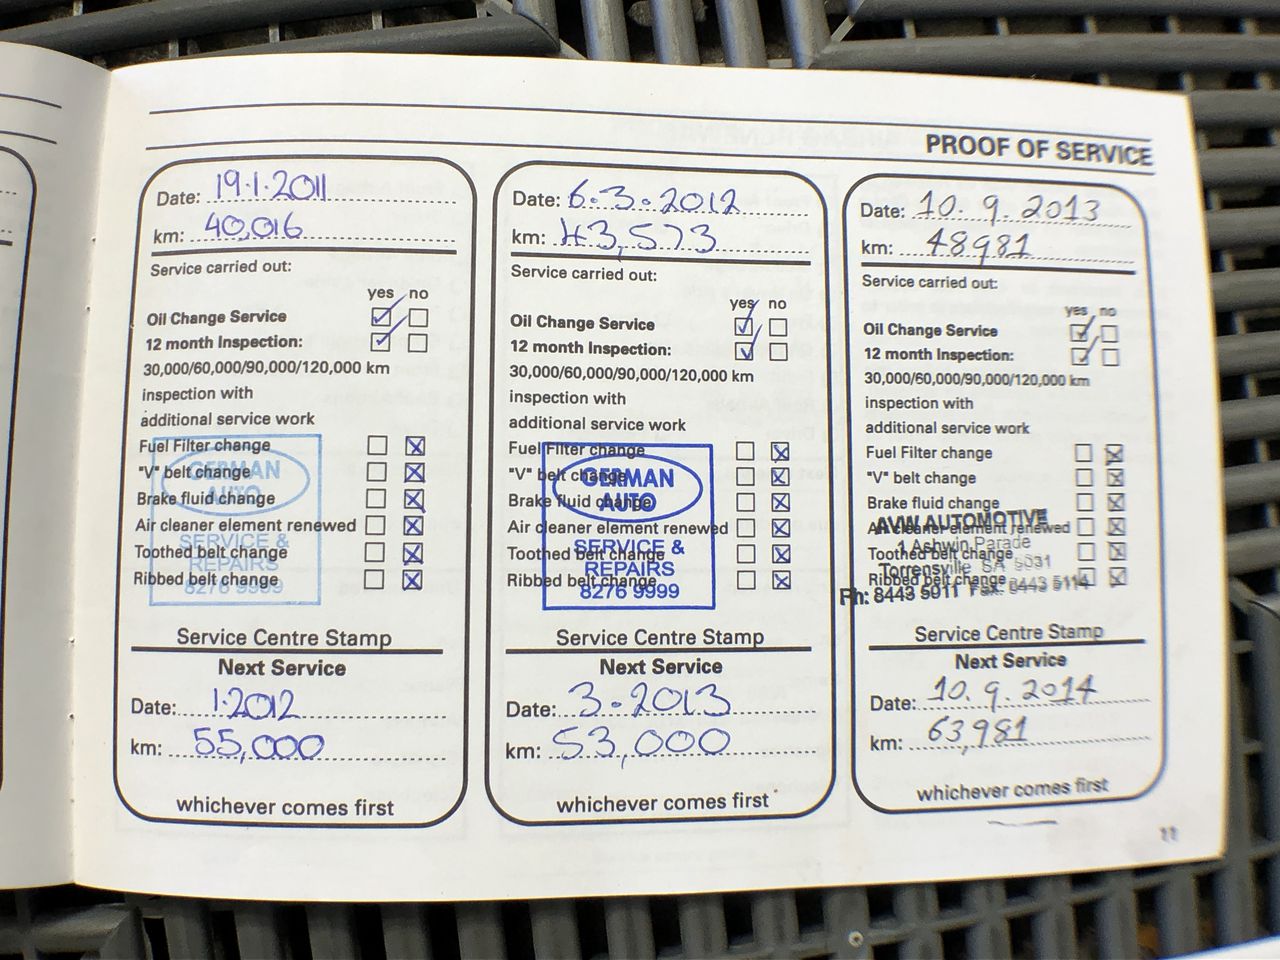 PROOF OF SERVICE
Date: 19.1.2011
km: 40,016
Service carried out:
yes no
Oil Change Service
12 month Inspection:
30,000/60,000/90,000/120,000 km
inspection with
additional service work
Fuel Filter change
"V" belt change
Brake fluid change
Air cleaner element renewed
Toothed belt change
Ribbed belt change
GERMAN
AUTO
SERVICE &
REPAIRS
8276 9999
Service Centre Stamp
Next Service
Date: 1.2012
km: 55,000
whichever comes first
Date: 6.3.2012
km: 43,573
Service carried out:
yes no
Oil Change Service
12 month Inspection:
30,000/60,000/90,000/120,000 km
inspection with
additional service work
Fuel Filter change
"V" belt change
Brake fluid change
Air cleaner element renewed
Toothed belt change
Ribbed belt change
GERMAN
AUTO
SERVICE &
REPAIRS
8276 9999
Service Centre Stamp
Next Service
Date: 3.2013
km: 53,000
whichever comes first
Date: 10.9.2013
km: 48981
Service carried out:
yes no
Oil Change Service
12 month Inspection:
30,000/60,000/90,000/120,000 km
inspection with
additional service work
Fuel Filter change
"V" belt change
Brake fluid change
Air cleaner element renewed
Toothed belt change
Ribbed belt change
AVW AUTOMOTIVE
1 Ashwin Parade
Torrensville SA 5031
Ph: 8443 5011 Fax: 8443 5114
Service Centre Stamp
Next Service
Date: 10.9.2014
km: 63,981
whichever comes first
11